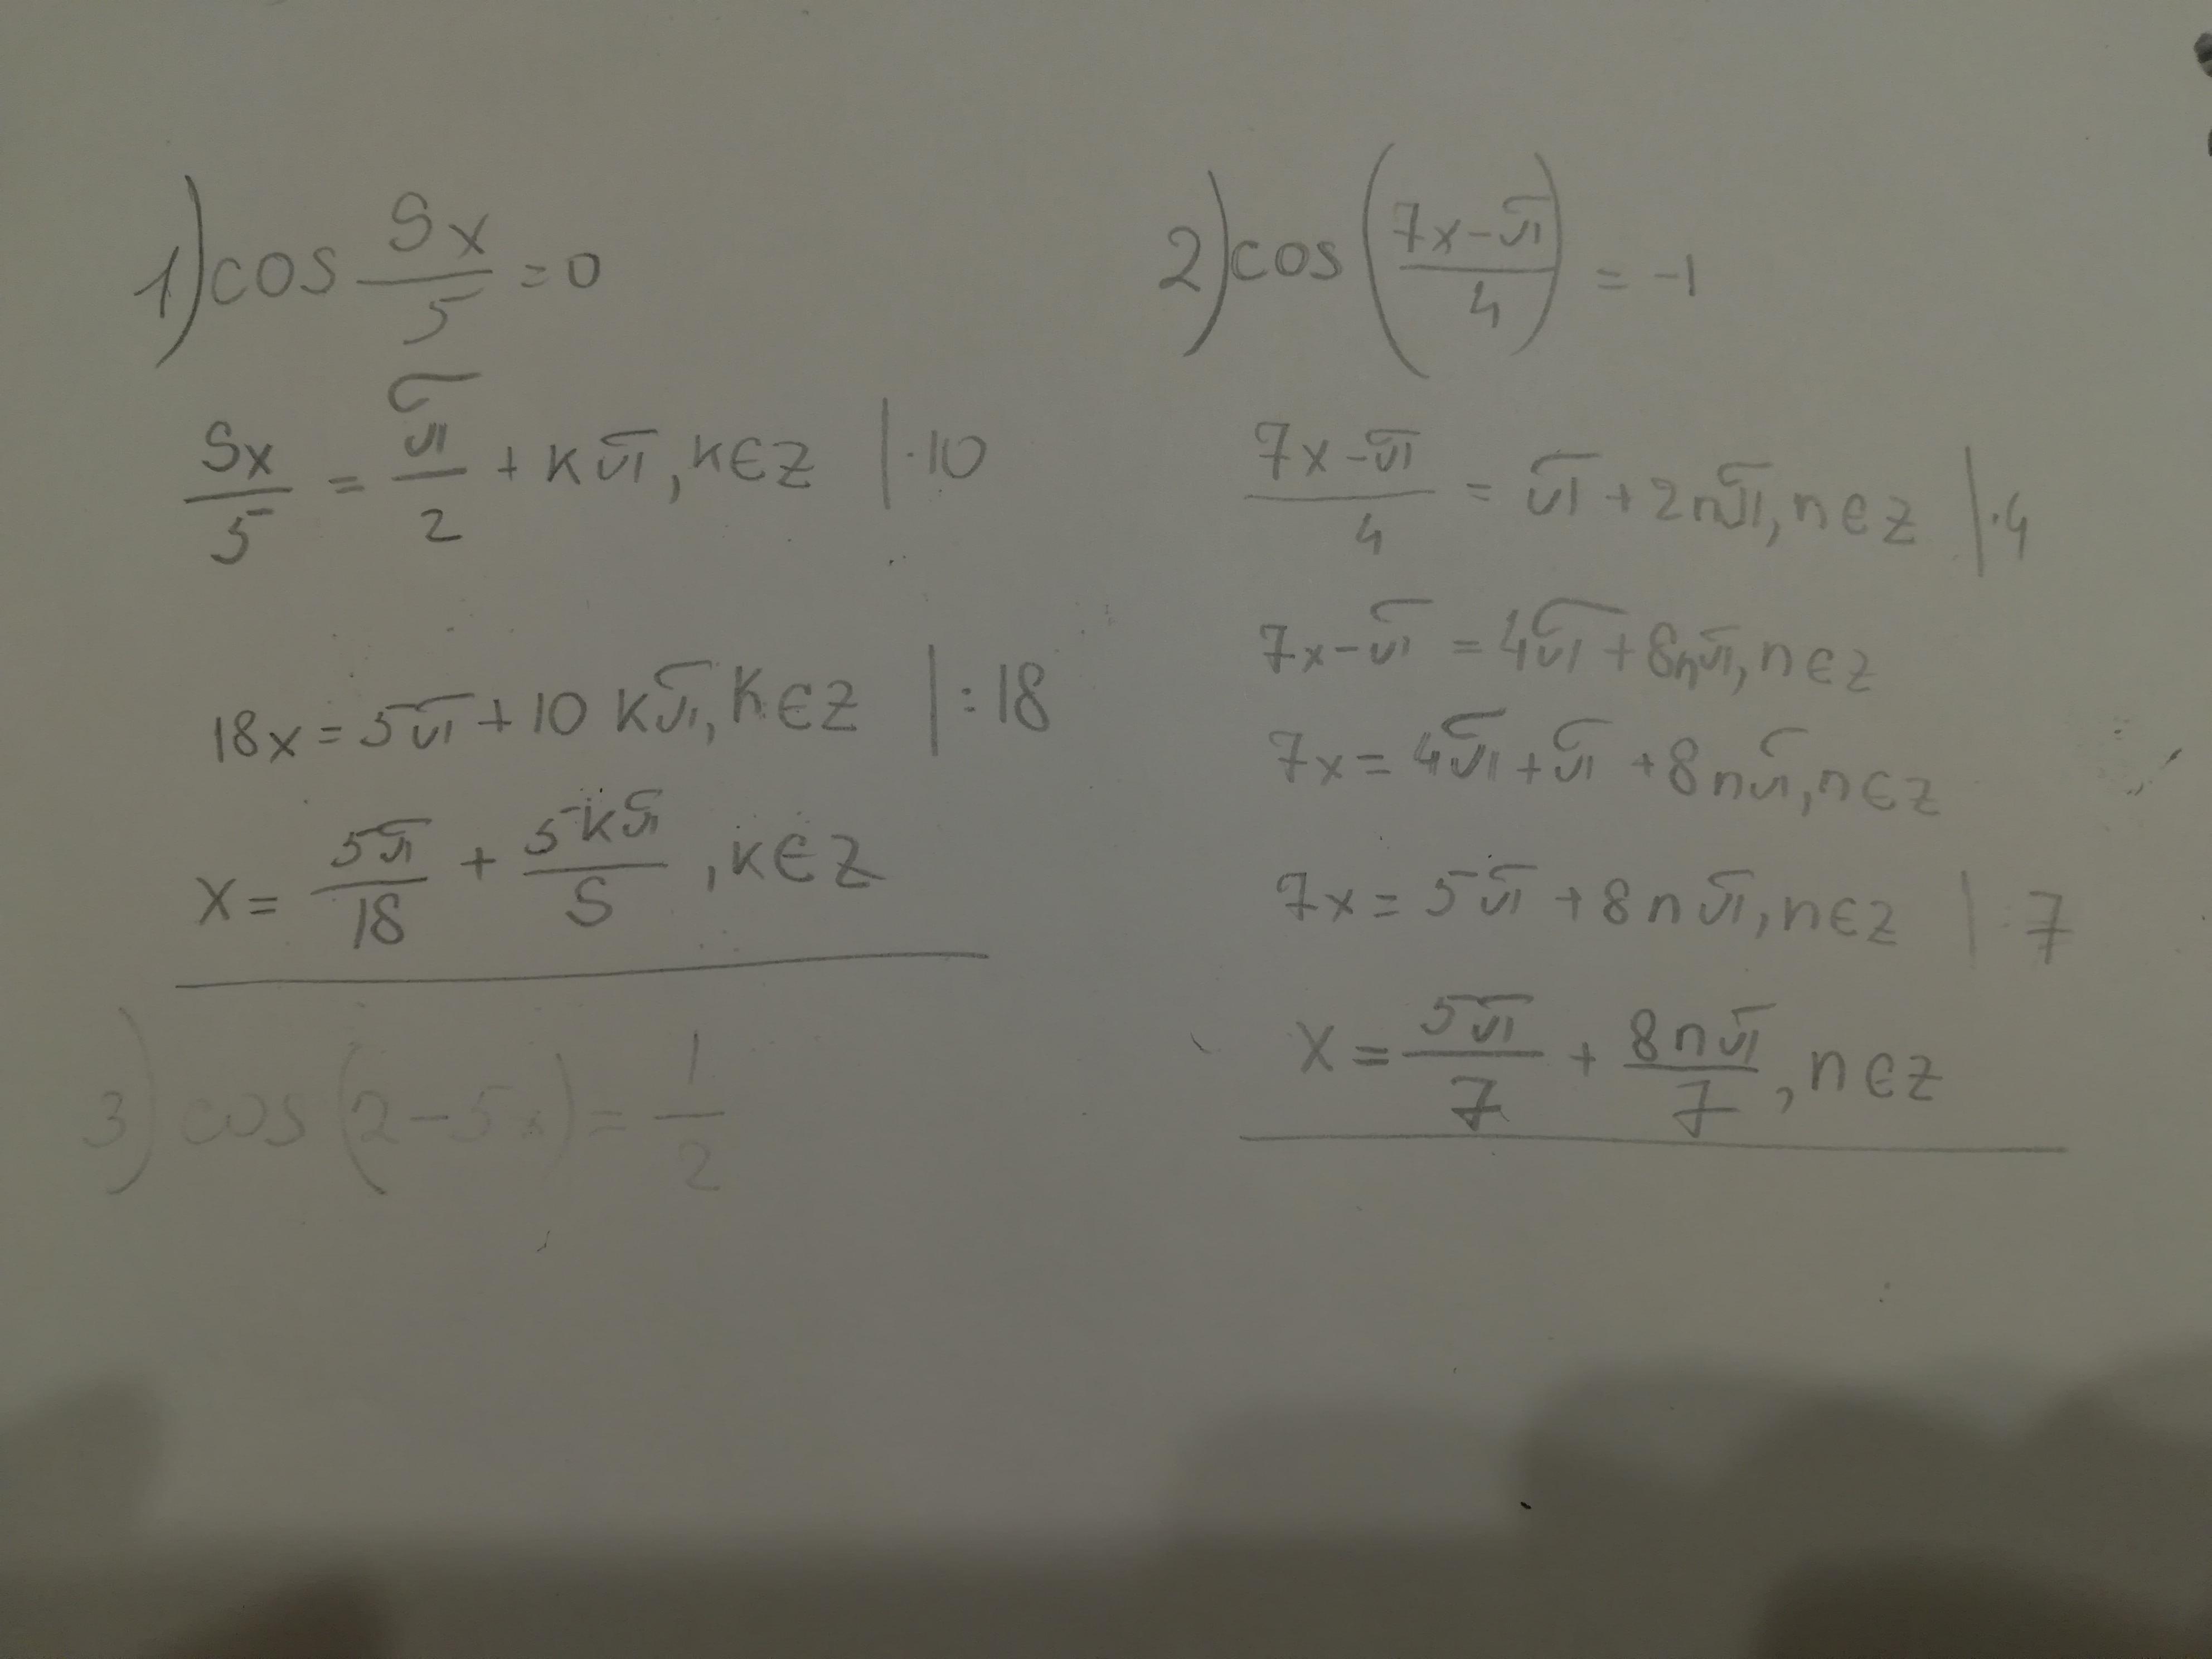 1) cos 9x/5 = 0
9x/5 = π/2 + kπ, k∈Z |·10
18x = 5π + 10kπ, k∈Z |:18
x = 5π/18 + 5kπ/9, k∈Z
2) cos (7x-π/4) = -1
7x-π/4 = π + 2nπ, n∈Z |·4
7x-π = 4π + 8nπ, n∈Z
7x = 4π + π + 8nπ, n∈Z
7x = 5π + 8nπ, n∈Z |:7
x = 5π/7 + 8nπ/7, n∈Z
3) cos (2-5x) = 1/2